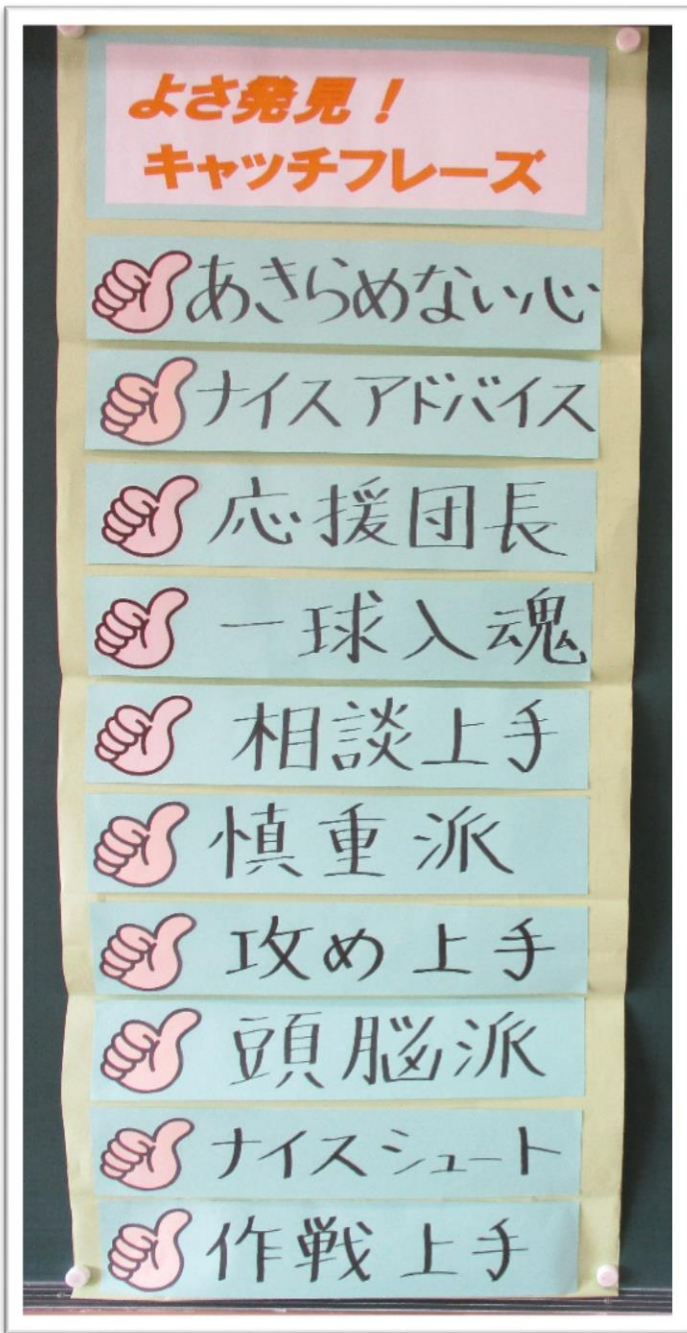 よさ発見！
キャッチフレーズ
あきらめない心
ナイスアドバイス
応援団長
一球入魂
相談上手
慎重派
攻め上手
頭脳派
ナイスシュート
作戦上手